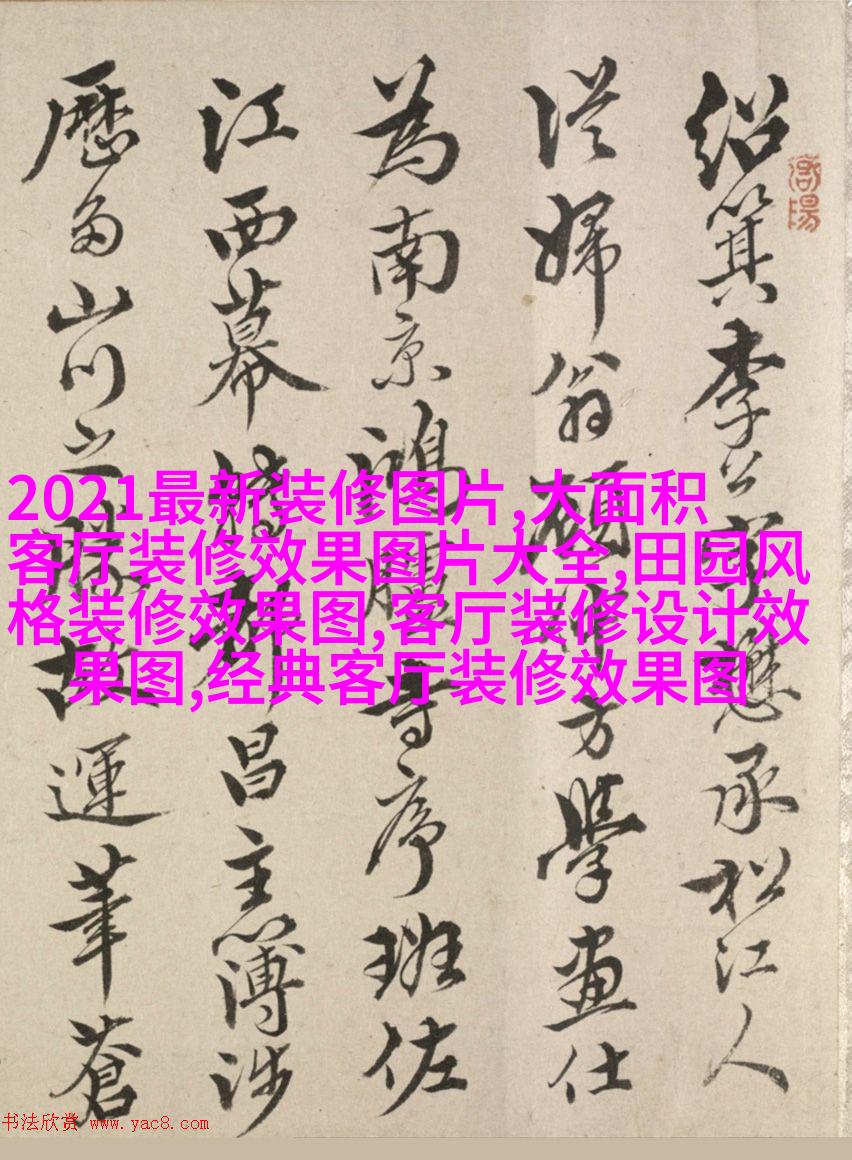 紹箕李公字懋承松江人
從婦翁顧仲方學畫仕
為南京鴻臚寺序班佐
江西幕昌主薄涉
歷多山川之勝故運筆蒼
2021最新装修图片,大面积
客厅装修效果图片大全,田园风
格装修效果图,客厅装修设计效
果图,经典客厅装修效果图
书法欣赏 www.yac8.com